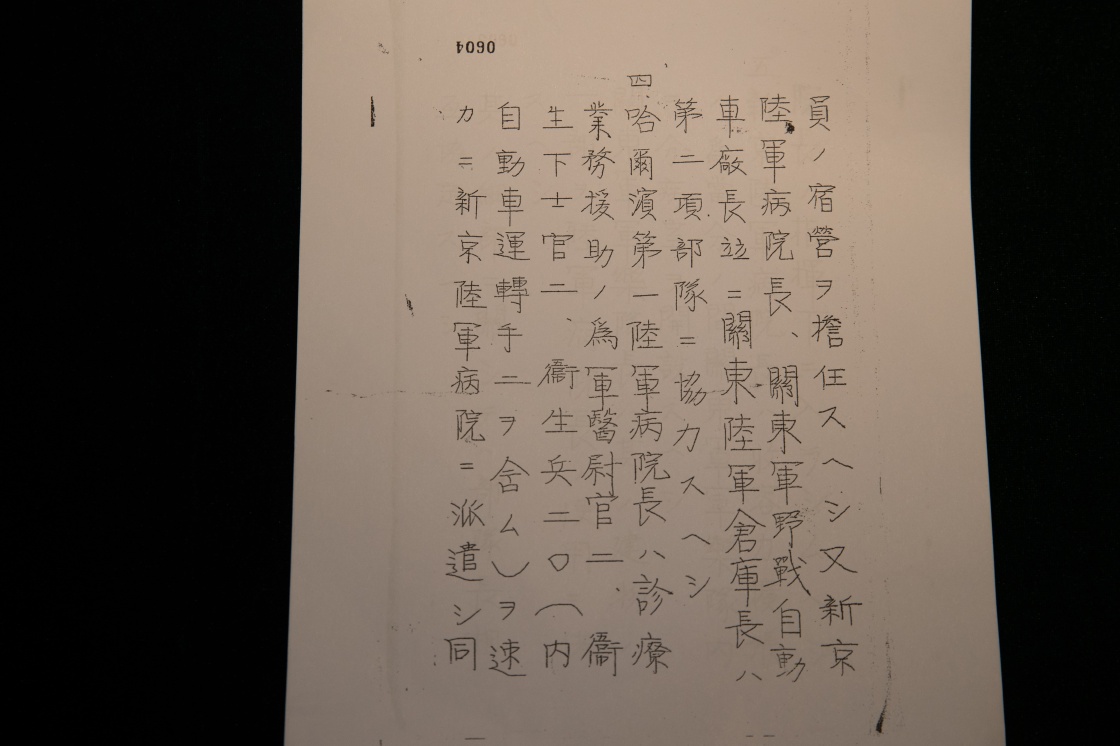 員ノ宿營ヲ擔任スヘシ又新京
陸軍病院長、關東軍野戰自動
車廠長竝ニ關東陸軍倉庫長ハ
第二項部隊ニ協力スヘシ
四、哈爾濱第一陸軍病院長ハ診療
業務援助ノ爲軍醫尉官二、衞
生下士官二、衞生兵二〇(内
自動車運轉手二ヲ含ム)ヲ速
カニ新京陸軍病院ニ派遣シ同
0604